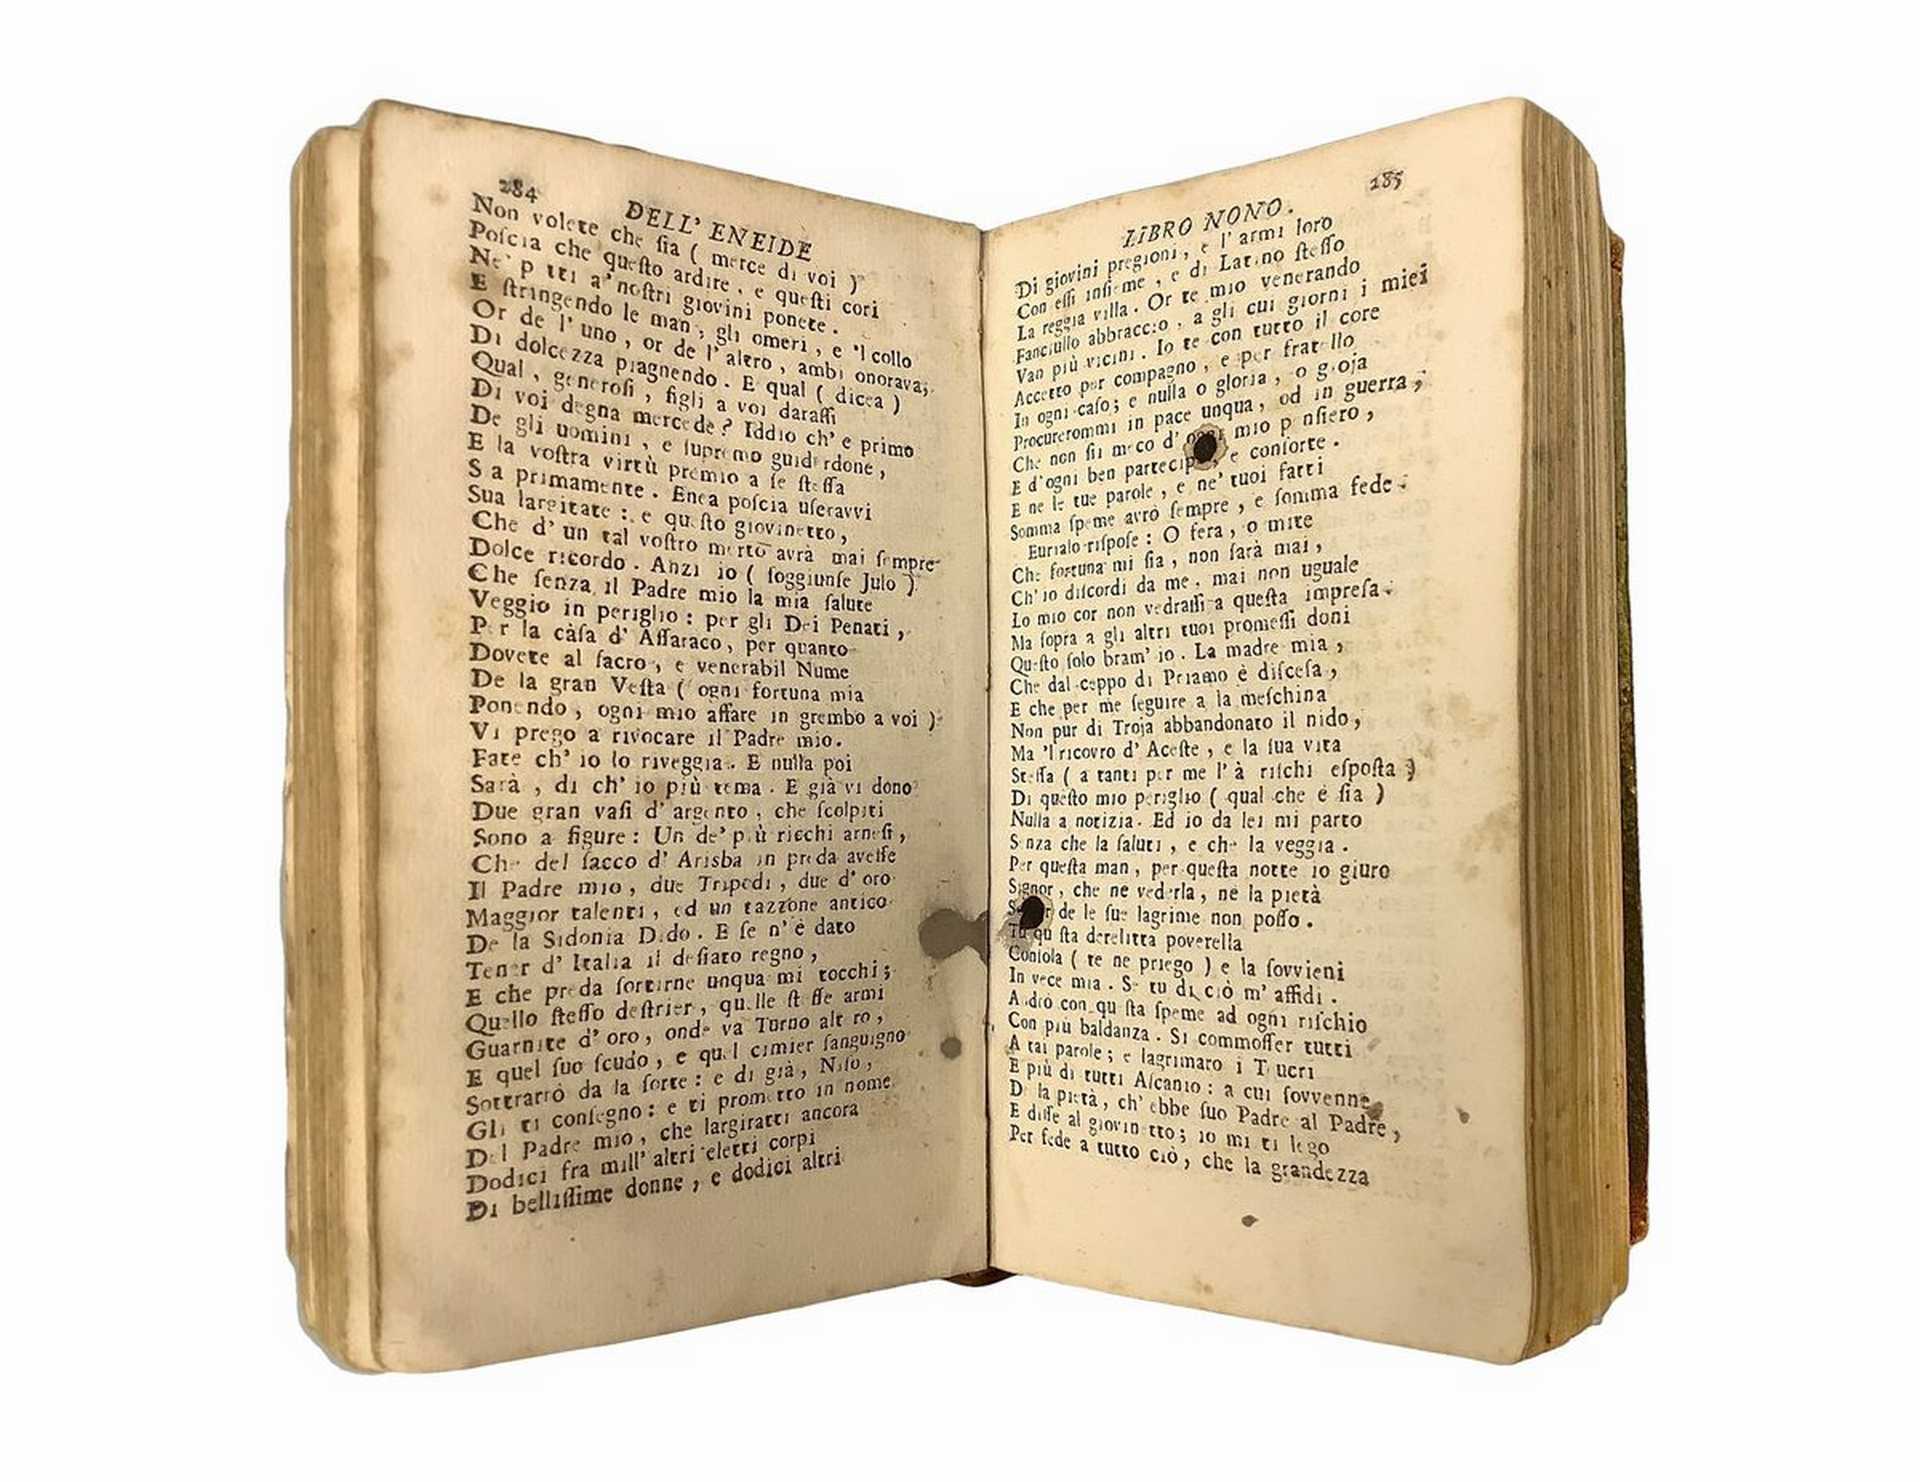 284
DELL' ENEIDE
Non volete che ſia ( merce di voi )
Poſcia che queſto ardire, e queſti cori
Ne' petti a' noſtri giovini ponete.
E ſtringendo le man, gli omeri, e 'l collo
Or de l' uno, or de l' altro, ambi onorava,
Di dolcezza piagnendo. E qual ( dicea )
Qual, generoſi, figli a voi daraſſi
Di voi degna mercede? Iddio ch' e primo
De gli uomini, e ſupremo guiderdone,
E la voſtra virtù premio a ſe ſteſſa
Sia primamente. Enea poſcia uſeravvi
Sua largitate: e queſto giovinetto,
Che d' un tal voſtro merto avrà mai ſempre
Dolce ricordo. Anzi io ( ſoggiunſe Julo )
Che ſenza il Padre mio la mia ſalute
Veggio in periglio: per gli Dei Penati,
Per la càſa d' Aſſaraco, per quanto
Dovete al ſacro, e venerabil Nume
De la gran Veſta ( ogni fortuna mia
Ponendo, ogni mio affare in grembo a voi )
Vi prego a rivocare il Padre mio.
Fate ch' io lo riveggia. E nulla poi
Sarà, di ch' io più tema. E già vi dono
Due gran vaſi d' argento, che ſcolpiti
Sono a figure: Un de' più ricchi arneſi,
Che del ſacco d' Arisba in preda aveſſe
Il Padre mio, due Tripodi, due d' oro
Maggior talenti, ed un tazzone antico
De la Sidonia Dido. E ſe n' è dato
Tener d' Italia il deſiato regno,
E che preda ſortirne unqua mi tocchi;
Quello ſteſſo deſtrier, quelle ſteſſe armi
Guarnite d' oro, onde va Turno altero,
E quel ſuo ſcudo, e quel cimier ſanguigno
Sottrarrò da la ſorte: e di già, Niſo,
Gli ti conſegno: e ti prometto in nome
Del Padre mio, che largiratti ancora
Dodici fra mill' altri eletti corpi
Di belliſſime donne, e dodici altri
LIBRO NONO.
285
Di giovini pregioni, e l' armi loro
Con eſſi inſieme, e di Latino ſteſſo
La reggia villa. Or te mio venerando
Fanciullo abbraccio, a gli cui giorni i miei
Van più vicini. Io te con tutto il core
Accetto per compagno, e per fratello
In ogni caſo; e nulla o gloria, o gioja
Procurerommi in pace unqua, od in guerra,
Che non ſii meco d' mio penſiero,
E d'ogni ben e conſorte.
E ne le tue parole, e ne' tuoi fatti
Somma ſpeme avrò ſempre, e ſomma fede.
Eurialo riſpoſe: O fera, o mite
Che fortuna mi ſia, non ſarà mai,
Ch' io diſcordi da me. mai non uguale
Lo mio cor non vedraſſi a queſta impreſa.
Ma ſopra a gli altri tuoi promeſſi doni
Queſto ſolo bram' io. La madre mia,
Che dal ceppo di Priamo è diſceſa,
E che per me ſeguire a la meſchina
Non pur di Troja abbandonato il nido,
Ma 'l ricovro d' Aceſte, e la ſua vita
Steſſa ( a tanti per me l' à riſchi eſpoſta )
Di queſto mio periglio ( qual che e ſia )
Nulla a notizia. Ed io da lei mi parto
Senza che la ſaluti, e che la veggia.
Per queſta man, per queſta notte io giuro
Signor, che ne vederla, ne la pietà
de le ſue lagrime non poſſo.
Tu queſta derelitta poverella
Conſola ( te ne priego ) e la ſovvieni
In vece mia. Se tu di ciò m' affidi.
Andrò con queſta ſpeme ad ogni riſchio
Con più baldanza. Si commoſſer tutti
A tai parole; e lagrimaro i Teucri
E più di tutti Aſcanio: a cui ſovvenne
De la pietà, ch' ebbe ſuo Padre al Padre,
E diſſe al giovinetto; io mi ti lego
Per fede a tutto ciò, che la grandezza